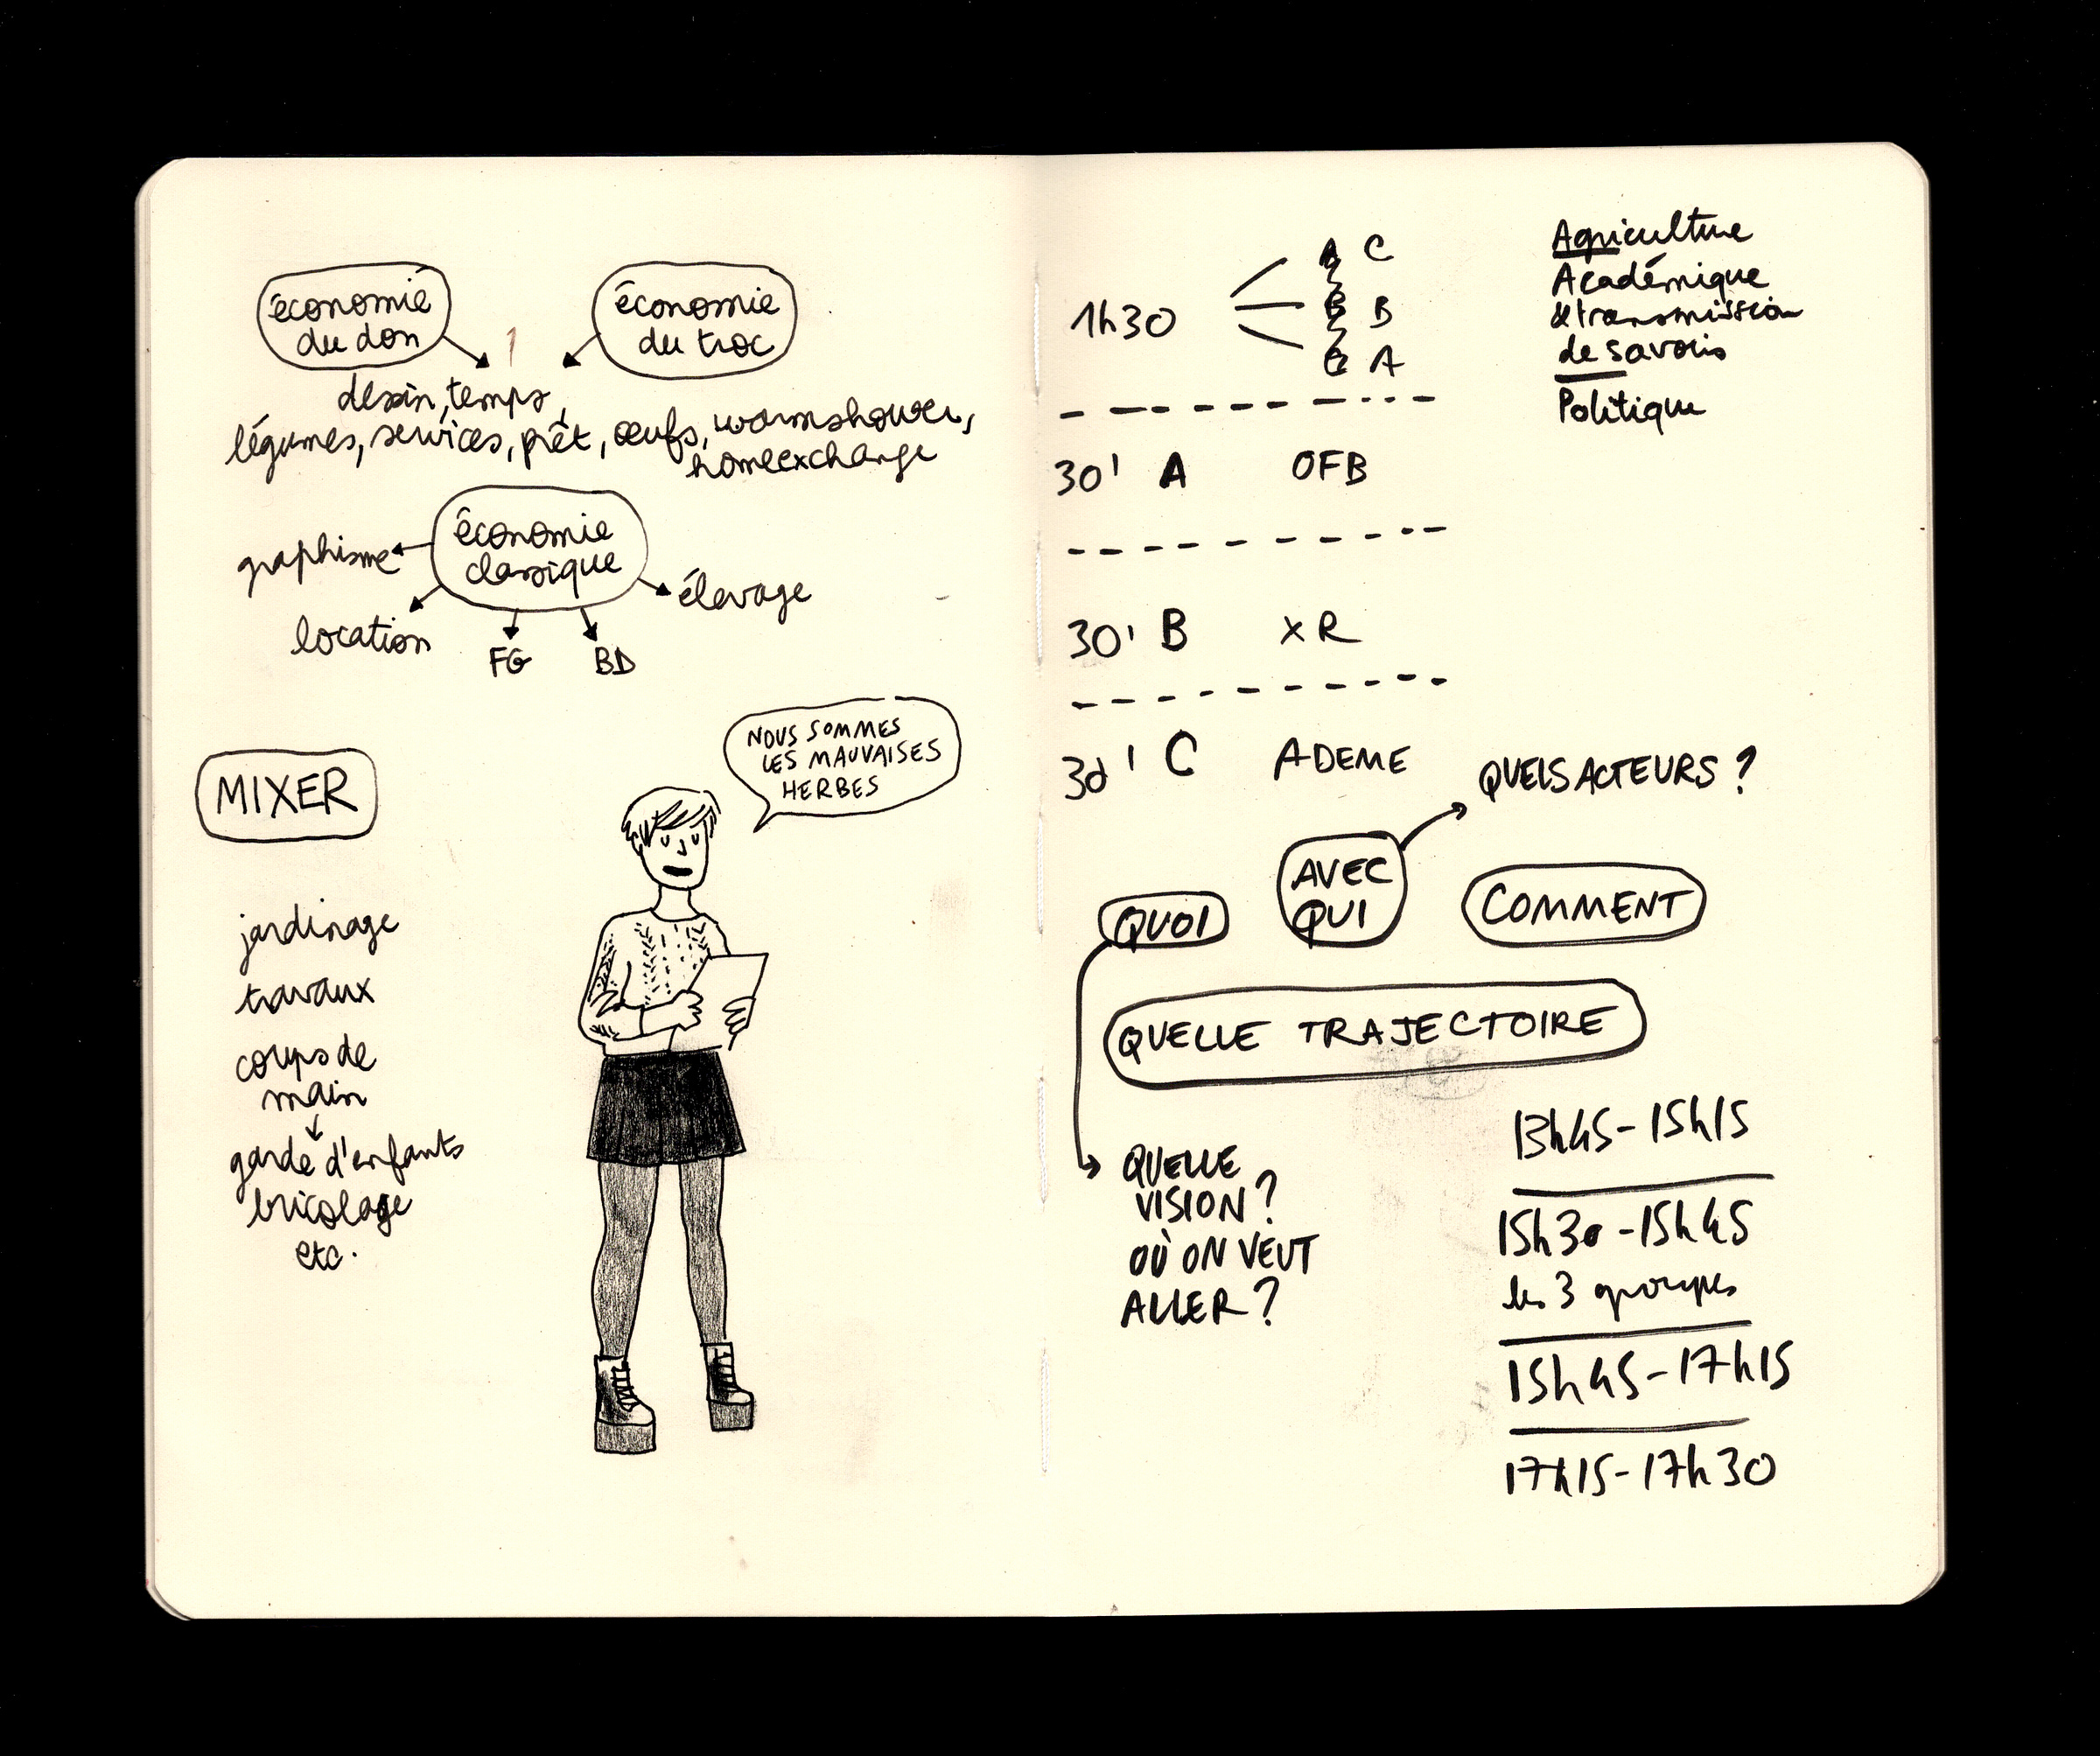 économie
du don
économie
du troc
dessin, temps,
légumes, services, prêt, œufs, warmshower,
homeexchange
économie
classique
graphisme
location
FG
BD
élevage
NOUS SOMMES
LES MAUVAISES
HERBES
MIXER
jardinage
travaux
coups de
main
garde d'enfants
bricolage
etc.
1h30
A C
B B
C A
Agriculture
Académique
& transmission
de savoirs
Politique
30' A OFB
30' B XR
30' C ADEME
QUELS ACTEURS ?
QUOI
AVEC
QUI
COMMENT
QUELLE TRAJECTOIRE
QUELLE
VISION ?
OÙ ON VEUT
ALLER ?
13h45-15h15
15h30-15h45
les 3 groupes
15h45-17h15
17h15-17h30